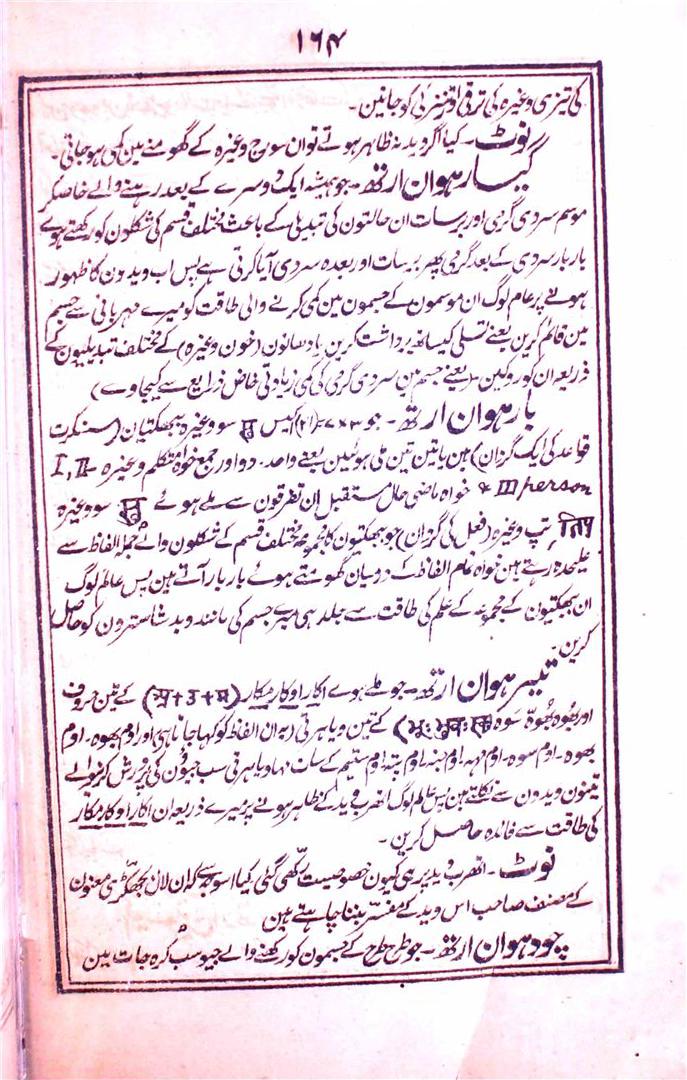 ۱۶۴
کی تیزی وغیرہ کی ترقی اور تنزلی کو جانین۔
نوٹ۔ کیا اگر وید نہ ظاہر ہوتے تو ان سورج وغیرہ کے گھومنے مین کمی ہوجاتی۔
گیارہوان ارتھ۔ جو ہمیشہ ایک دوسرے کے بعد رہنے والے خاصکر
موسم سردی گرمی اور برسات ان حالتون کی تبدیلی کے باعث مختلف قسم کی شکلون کو رکھتے ہوے
بار بار سردی کے بعد گرمی پھر برسات اور بعدہ سردی آیا کرتی ہے پس اب ویدون کا ظہور
ہونے پر عام لوگ ان موسمون کے جسمون مین کمی کرنے والی طاقت کو میرے مہربانی سے جسم
مین قائم کرین یعنے تسلی کیساتھ برداشت کرین یا دھاتون (خون وغیرہ) کے مختلف تبدیلیون کے
ذریعہ ان کو روکین۔ (یعنے جسم مین سردی گرمی کی کمی زیادتی خاص ذرایع سے کیجاوے)
بارہوان ارتھ۔ جو ۳×۷=(۲۱) اکیس सु سو وغیرہ بھکتیان (سنسکرت
قواعد کی ایک گردان) ہین یا تین تین ملی ہوئین یعنے واحد۔ دو اور جمع خواہ متکلم وغیرہ I, II
& III person خواہ ماضی حال مستقبل ان تفرقون سے ملے ہوئے सु سو وغیرہ
तिप् تپ وغیرہ (فعل کی گردان) جو بھکتیون کا مجموعہ مختلف قسم کے شکلون والے جملہ الفاظ سے
علیحدہ رہتے ہین خواہ تمام الفاظ کے درمیان گھومتے ہوئے بار بار آتے ہین پس عالم لوگ
ان بھکتیون کے مجموعہ کے علم کی طاقت سے جلد ہی میرے جسم کی مانند وید شاسترون کو حاصل
کرین۔
تیسرہوان ارتھ۔ جو ملے ہوے اکار اوکار مکار (अ+उ+म) کے تین حروف
اور بھوہ بھوہ سوہ (भूः भुवः स्वः) کے تین ویاہرتی ان الفاظ کو کہا جاتا ہی اور اوم بھوہ۔ اوم
بھوہ۔ اوم سوہ۔ اوم مہہ اوم جنہ اوم تپہ اوم ستیم کے سات مہا ویاہرتی سب جیون کی پرورش کرنیوالے
تینون ویدون سے نکلتے ہین پس عالم لوگ اتھرب وید کے ظاہر ہونے پر میرے ذریعہ ان اکار اوکار مکار
کی طاقت سے فائدہ حاصل کرین۔
نوٹ۔ اتھرب وید پر ہی کیون خصوصیت رکھی گئی کیا اسوجہ سے کہ ان لال بجھکڑی معنون
کے مصنف صاحب اس وید کے مفسر بننا چاہتے ہین
چودہوان ارتھ۔ جو طرح طرح کے جسمون کو رکھنے والے جیو سب کرہ جات مین